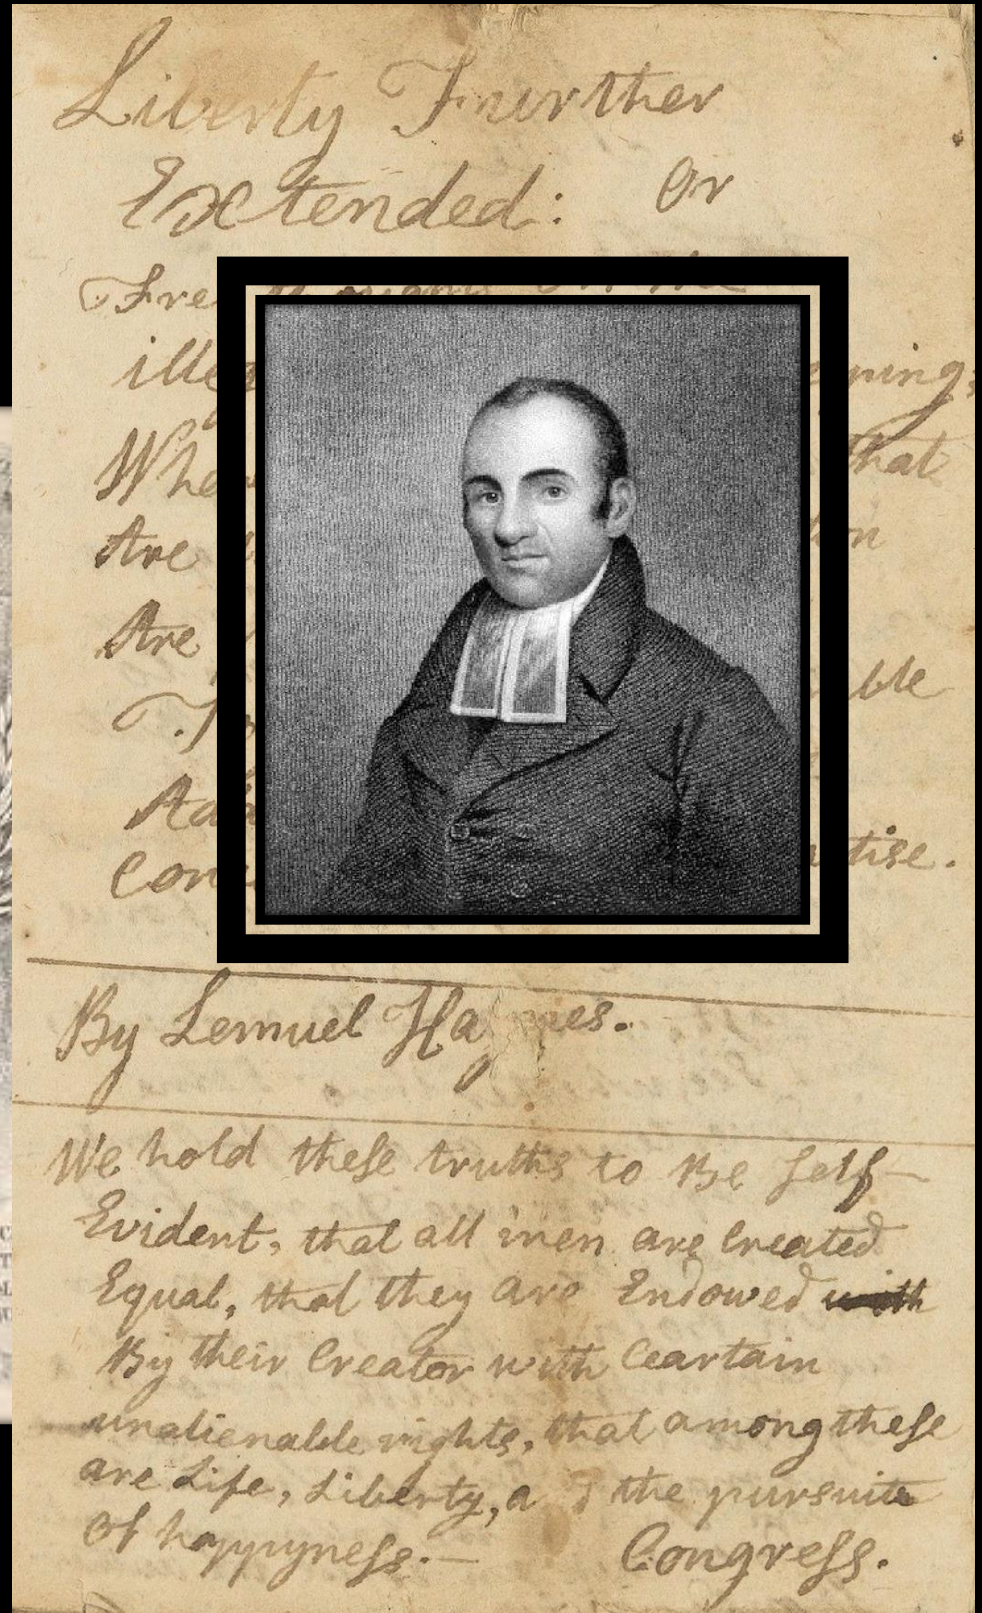 Liberty Further
Extended: Or
Fre
ille ning,
Whe that
Are on
Are
ble
Ad
Con tise.
By Lemuel Ha nes.
We hold theſe truths to Be ſelf—
Evident, that all men are Created
Equal, that they are Endowed with
By their Creator with Ceartain
unalienable rights, that among theſe
are Life, Liberty, a d the pursuite
Of happyneſs.— Congreſs.